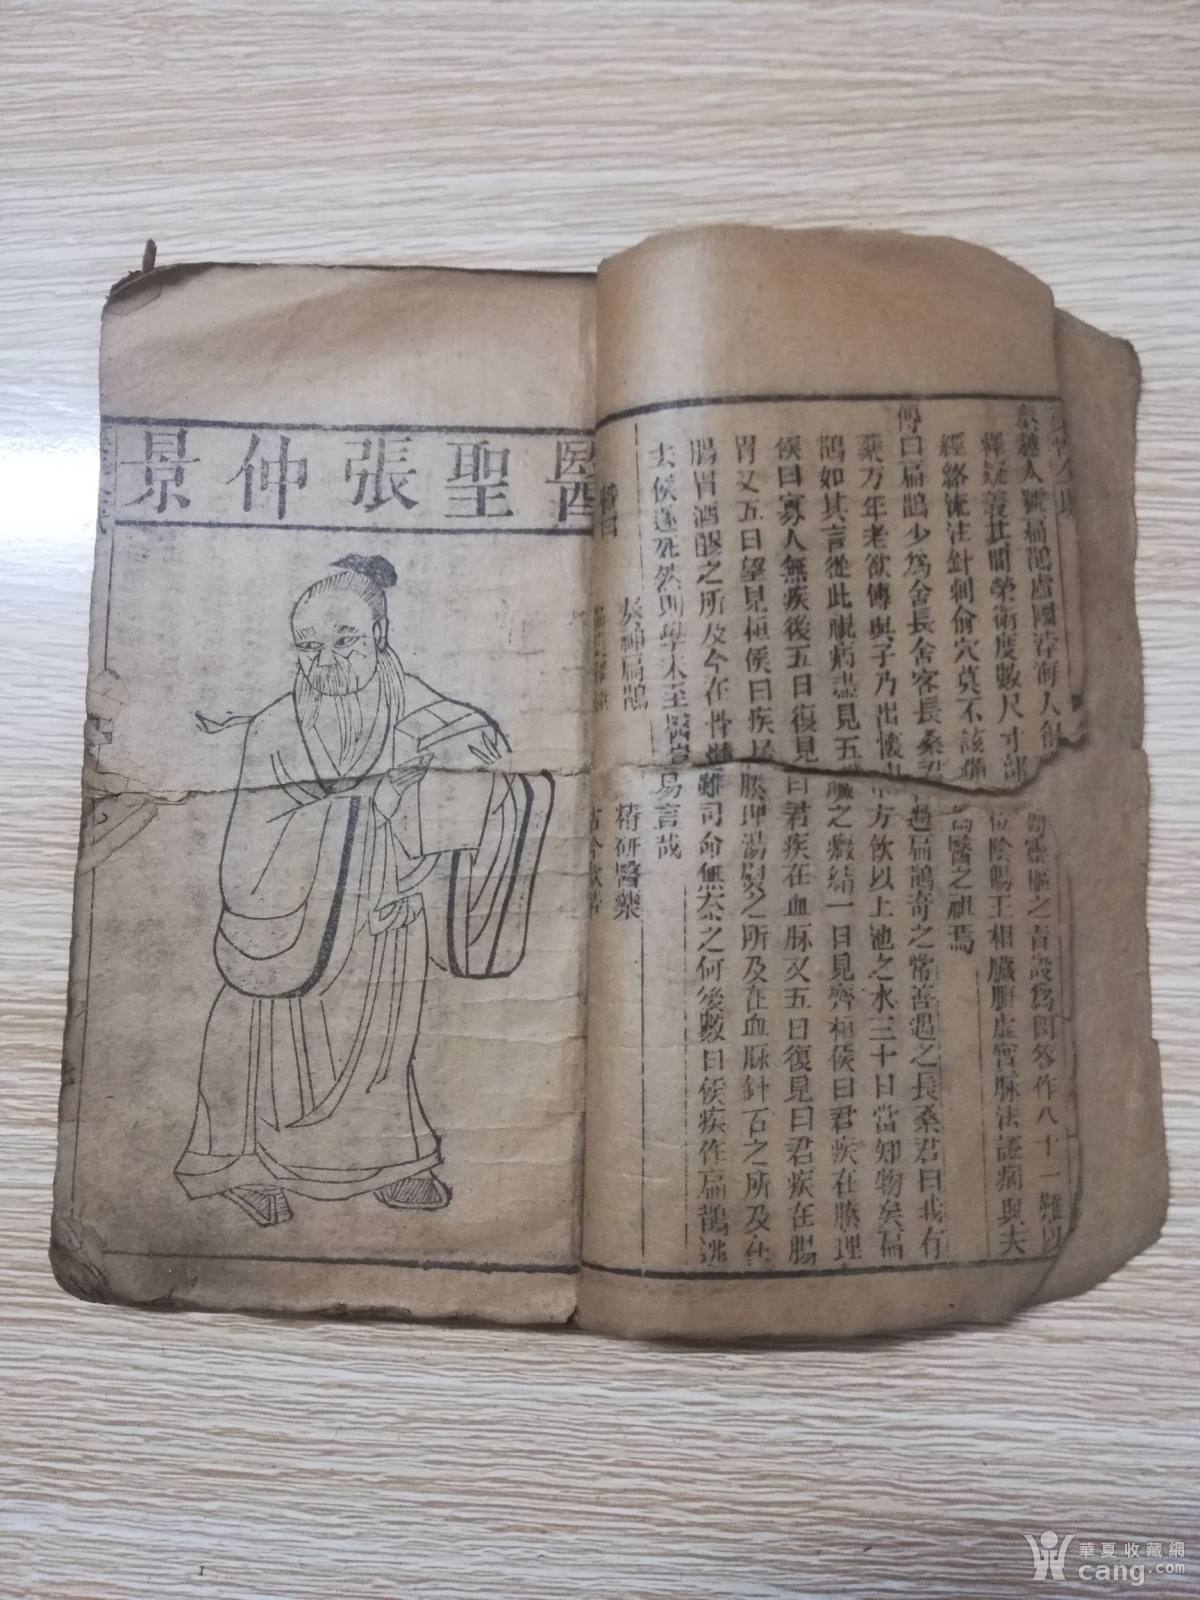 秦越人號扁鵲盧國渤海人
靈樞之旨設爲問答作八十一難以
釋疑義其間榮衛度數尺寸部
位陰陽王相臟腑虛實脉法證病與夫
經絡流注針刺俞穴莫不該
爲醫之祖焉
傳曰扁鵲少爲舍長舍客長桑君過扁鵲奇之常善遇之長桑君曰我有
藥方年老欲傳與子乃出懷中方飲以上池之水三十日當知物矣扁
鵲如其言從此視病盡見五臟之癥結一日見齊桓侯曰君疾在腠理
侯曰寡人無疾後五日復見曰君疾在血脉又五日復見曰君疾在腸
胃又五日望見桓侯曰疾居腠理湯熨之所及在血脉針石之所及在
腸胃酒醪之所及今在骨髓雖司命無奈之何後數日侯疾作扁鵲逃
去侯遂死然則學未至醫豈易言哉
贊曰
秦神扁鵲 精研醫藥
醫聖張仲景
華夏收藏網
cang.com